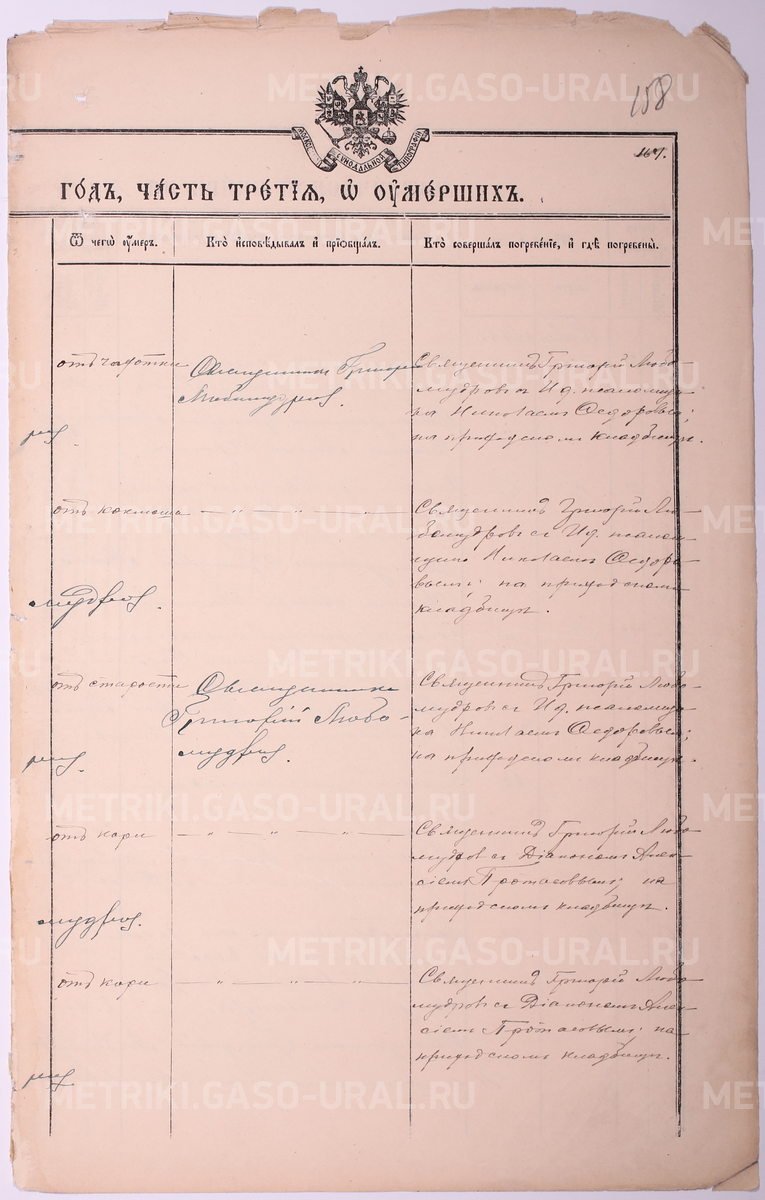 158
167.
ГОДЪ, ЧАСТЬ ТРЕТІЯ, Ѡ ОУМЕРШИХЪ.
Ѿ чегѡ оумеръ.
Кто исповѣдывалъ и пріобщалъ.
Кто совершалъ погребеніе, и гдѣ погребены.
отъ чахотки
Священникъ Григорій
Любомудровъ.
Священникъ Григорій Любо-
мудровъ съ И. д. псаломщи-
ка Николаемъ Федоровымъ;
на приходскомъ кладбищѣ.
отъ коклюша
— „ — „ — „ —
Священникъ Григорій Лю-
бомудровъ съ И. д. псалом-
щика Николаемъ Федоро-
вымъ; на приходскомъ
кладбищѣ.
отъ старости
Священникъ
Григорій Любо-
мудровъ.
Священникъ Григорій Любо-
мудровъ съ И. д. псаломщи-
ка Николаемъ Федоровымъ;
на приходскомъ кладбищѣ.
отъ кори
— „ — „ — „ —
Священникъ Григорій Любо-
мудровъ съ Діакономъ Алек-
сіемъ Протасовымъ; на
приходскомъ кладбищѣ.
отъ кори
— „ — „ — „ —
Священникъ Григорій Любо-
мудровъ съ Діакономъ Алек-
сіемъ Протасовымъ; на
приходскомъ кладбищѣ.
METRIKI.GASO-URAL.RU